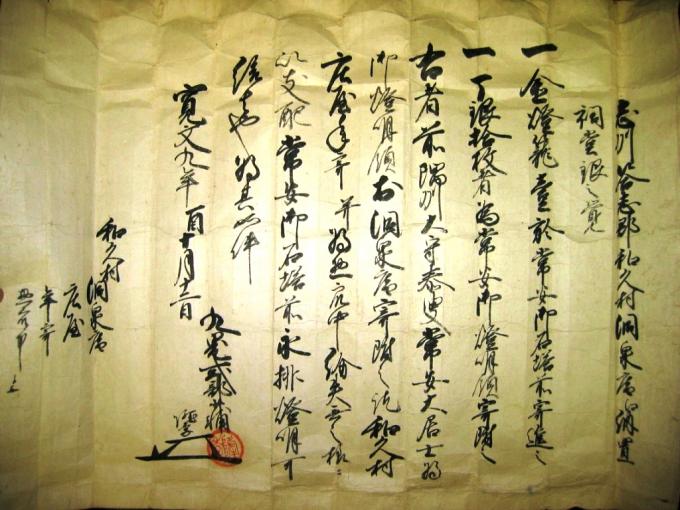 志州答志郡和久村洞泉庵渭置
祠堂銀之覚
一金燈籠壹於常安御石塔前寄進之
一丁銀拾枚者為常安御燈明領寄附之
右者前隅州大守泰叟常安大居士為
御燈明領お洞泉庵寄附之訖和久村
庄屋年寄并為惣氏中給失無之様ニ
以支配常安御石塔前永排燈明可
給者也為其如件
寛文九年酉十月十二日
九鬼式部少輔
和久村
洞泉庵
庄屋
年寄